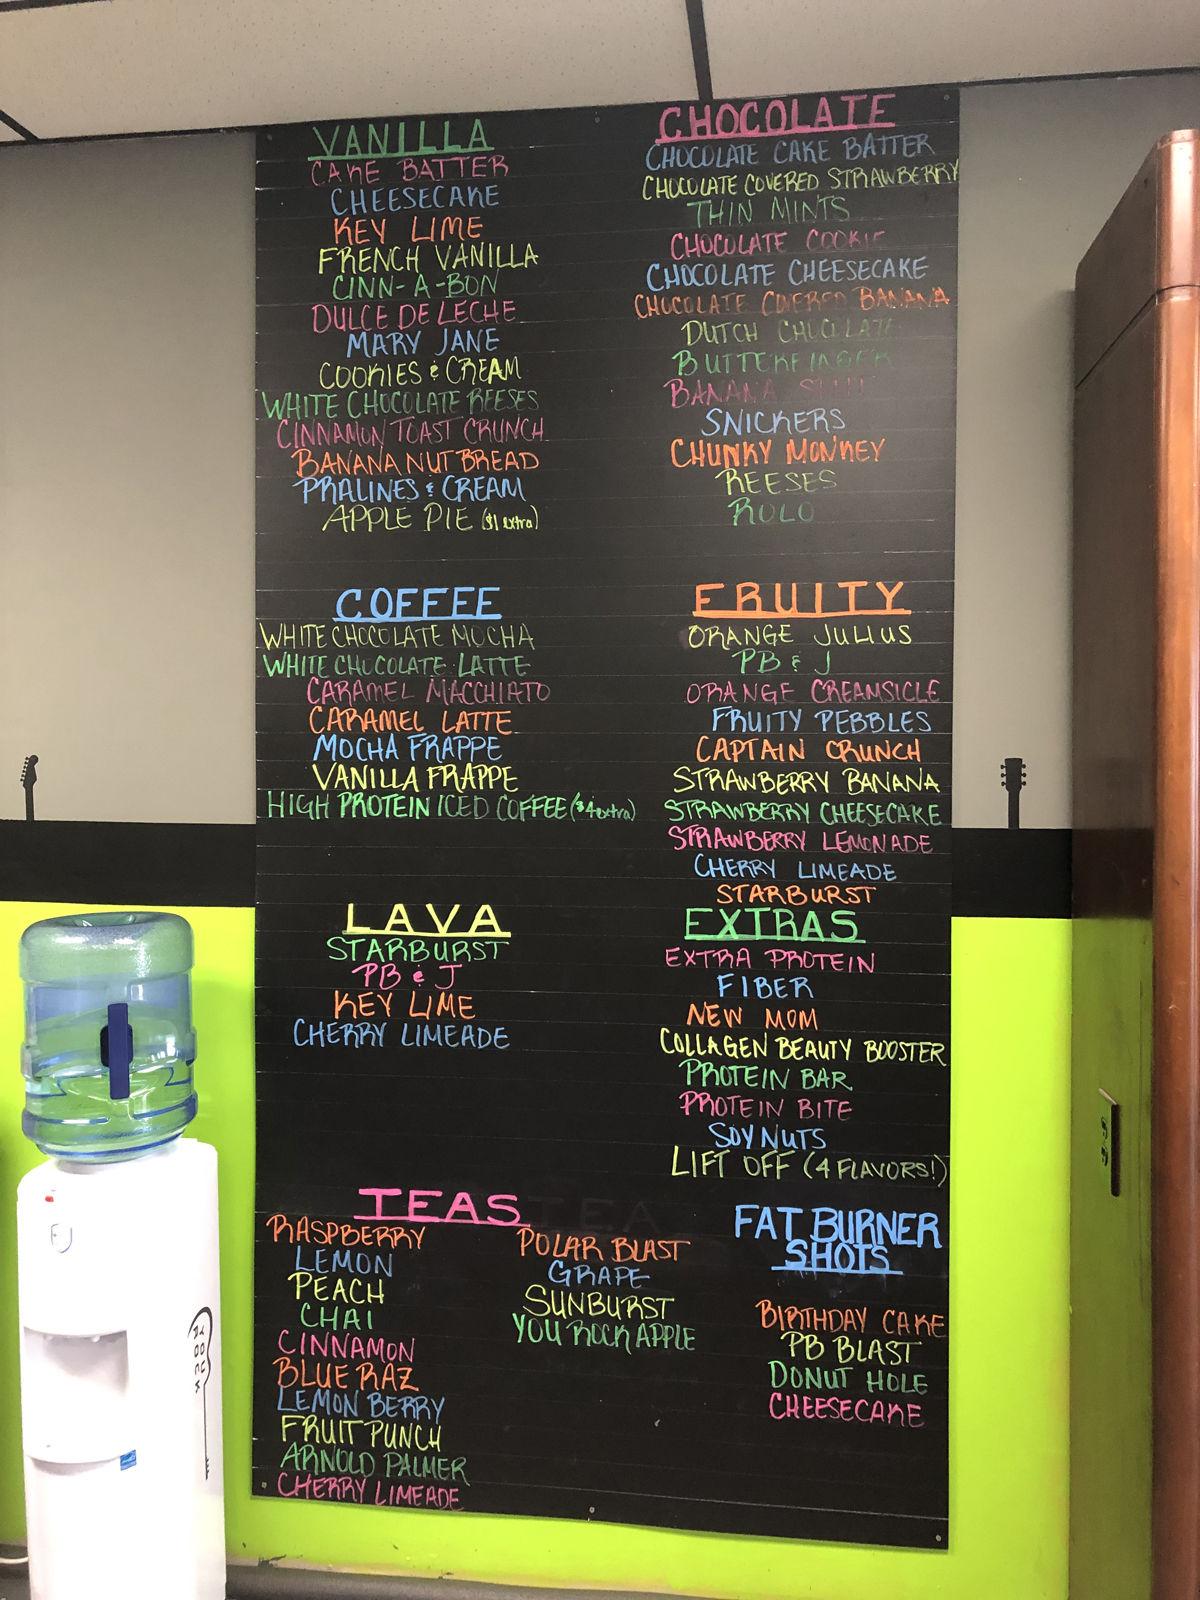 VANILLA
CAKE BATTER
CHEESECAKE
KEY LIME
FRENCH VANILLA
CINN-A-BON
DULCE DE LECHE
MARY JANE
COOKIES & CREAM
WHITE CHOCOLATE REESES
CINNAMON TOAST CRUNCH
BANANA NUT BREAD
PRALINES & CREAM
APPLE PIE ($1 extra)
CHOCOLATE
CHOCOLATE CAKE BATTER
CHOCOLATE COVERED STRAWBERRY
THIN MINTS
CHOCOLATE COOKIE
CHOCOLATE CHEESECAKE
CHOCOLATE COVERED BANANA
DUTCH CHOCOLATE
BUTTERFINGER
BANANA SPLIT
SNICKERS
CHUNKY MONKEY
REESES
ROLO
COFFEE
WHITE CHOCOLATE MOCHA
WHITE CHOCOLATE LATTE
CARAMEL MACCHIATO
CARAMEL LATTE
MOCHA FRAPPE
VANILLA FRAPPE
HIGH PROTEIN ICED COFFEE ($4 extra)
FRUITY
ORANGE JULIUS
PB & J
ORANGE CREAMSICLE
FRUITY PEBBLES
CAPTAIN CRUNCH
STRAWBERRY BANANA
STRAWBERRY CHEESECAKE
STRAWBERRY LEMONADE
CHERRY LIMEADE
STARBURST
LAVA
STARBURST
PB & J
KEY LIME
CHERRY LIMEADE
EXTRAS
EXTRA PROTEIN
FIBER
NEW MOM
COLLAGEN BEAUTY BOOSTER
PROTEIN BAR
PROTEIN BITE
SOY NUTS
LIFT OFF (4 FLAVORS!)
TEAS
TEA
RASPBERRY
LEMON
PEACH
CHAI
CINNAMON
BLUE RAZ
LEMON BERRY
FRUIT PUNCH
ARNOLD PALMER
CHERRY LIMEADE
POLAR BLAST
GRAPE
SUNBURST
YOU ROCK APPLE
FAT BURNER
SHOTS
BIRTHDAY CAKE
PB BLAST
DONUT HOLE
CHEESECAKE
YOU
ROCK